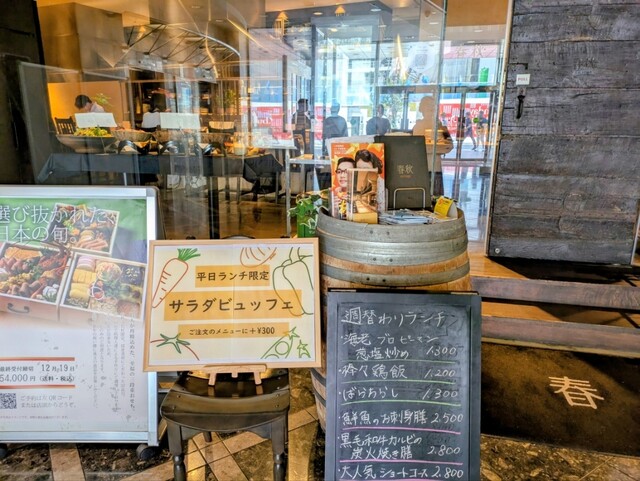 選び抜かれた、
日本の旬
12月19日
54,000円(送料・税込)
平日ランチ限定
サラダビュッフェ
ご注文のメニューに+¥300
春秋
PULL
週替わりランチ
海老 ブロッピーマン
葱塩炒め 1,300
棒々鶏飯 1,200
ばらちらし 1,300
・鮮魚のお刺身膳 2,500
・黒毛和牛カルビの
炭火焼き膳 2,800
・大人気ショートコース 2,800
春